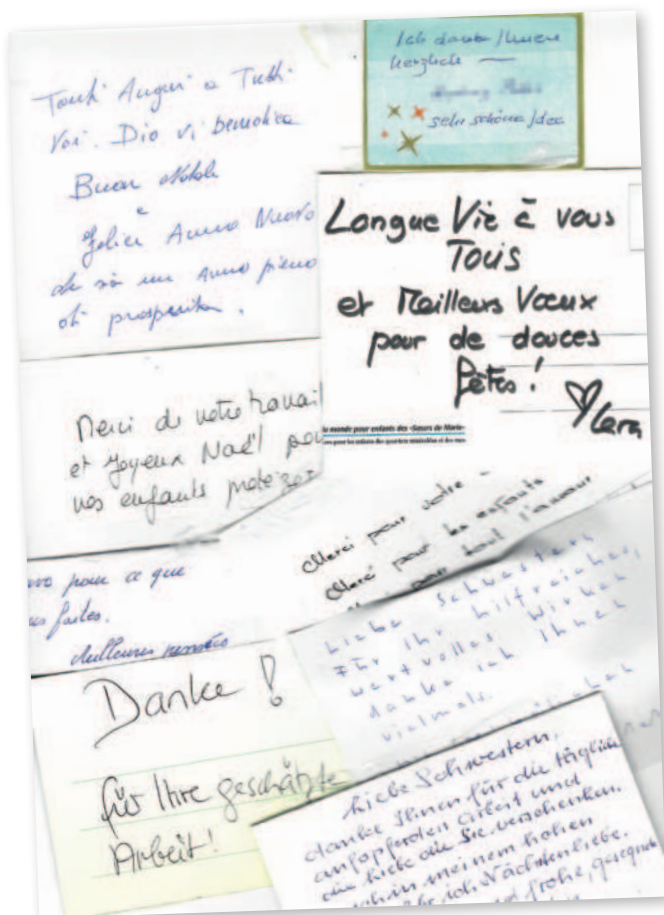 Tanti Auguri a Tutti
Voi. Dio vi benedica
Buon Natale
e
Felice Anno Nuovo
che sia un Anno pieno
di prosperità.
Ich danke Ihnen
herzlich —
sehr schöne Idee
Longue Vie à vous
Tous
et Meilleurs Vœux
pour de douces
fêtes!
Lara
le monde pour enfants des «Sœurs de Marie»
Merci de votre travail
et Joyeux Noël pour
vos enfants protégés
Merci pour votre
Merci pour les enfants
pour tout l'amour
pour ce que
faites.
Meilleures pensées
Liebe Schwestern
Für Ihr hilfreiches,
wertvolles Wirken
danke ich Ihnen
vielmals.
Danke!
für Ihre geschätzte
Arbeit!
Liebe Schwestern,
danke Ihnen für die tägliche
aufopfernden Arbeit und
die Liebe die Sie verschenken.
in meinem hohen
ich Nächstenliebe.
und frohe, gesegnete